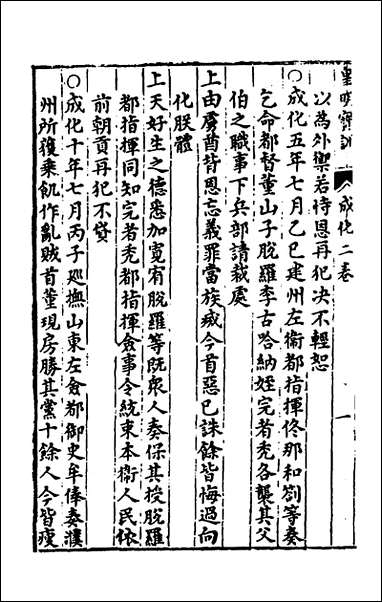 皇明寳訓 成化二卷 一
以為外禦若恃恩再犯決不輕恕
○成化五年七月乙巳建州左衛都指揮佟那和劄等奏
乞命都督董山子脫羅李古哈納姪完者禿各襲其父
伯之職事下兵部請裁處
上由虜酋皆恩忘義罪當族滅今首惡已誅餘皆悔過向
化朕體
上天好生之德悉加寬宥脫羅等既眾人奏保其授脫羅
都指揮同知完者禿都指揮僉事令統束本衛人民依
前朝貢再犯不貸
○成化十年七月丙子廵撫山東左僉都御史牟俸奏濮
州所獲乗飢作亂賊首董現房勝其黨十餘人今皆瘦